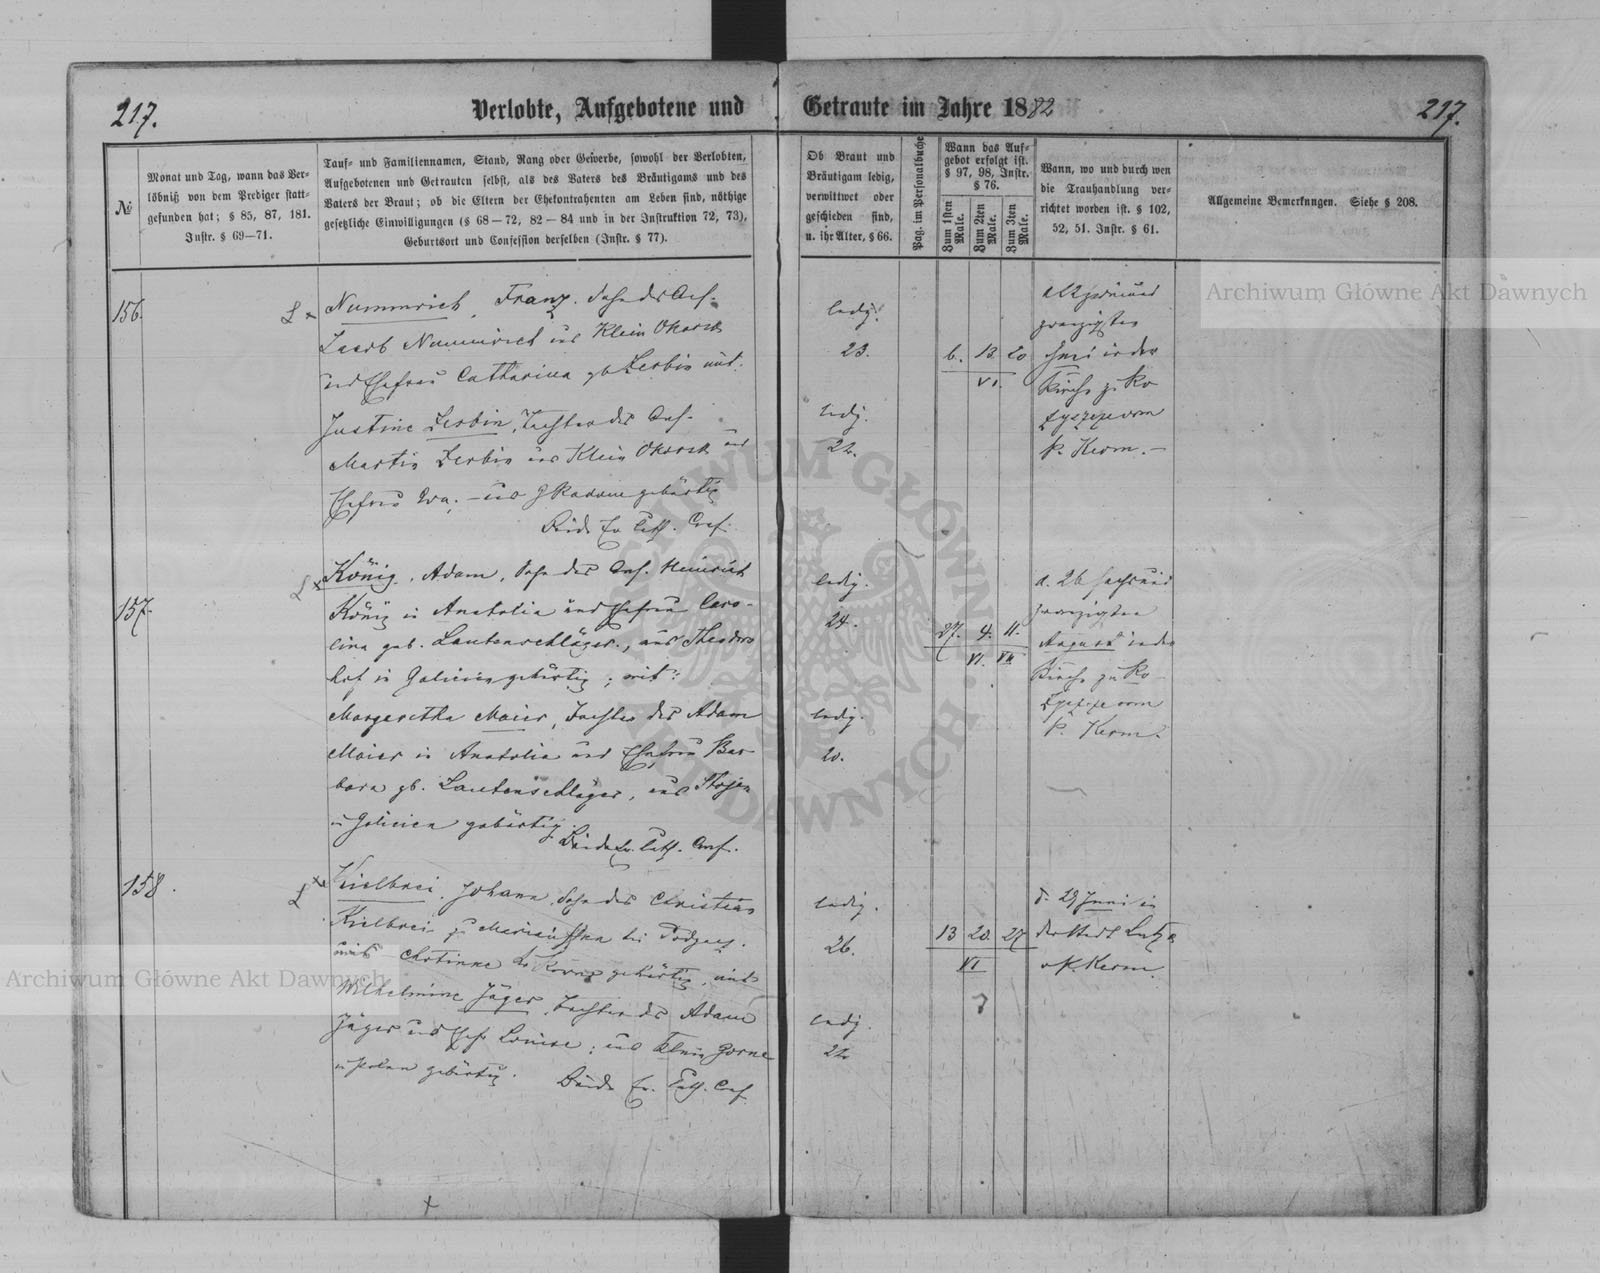 217.
Verlobte, Aufgebotene und Getraute im Jahre 1882
217.
№
Monat und Tag, wann das Ver-
löbniß von dem Prediger statt-
gefunden hat; § 85, 87, 181.
Instr. § 69—71.
Tauf- und Familiennamen, Stand, Rang oder Gewerbe, sowohl der Verlobten,
Aufgebotenen und Getrauten selbst, als des Vaters des Bräutigams und des
Vaters der Braut; ob die Eltern der Ehekontrahenten am Leben sind, nöthige
gesetzliche Einwilligungen (§ 68—72, 82—84 und in der Instruktion 72, 73),
Geburtsort und Confession derselben (Instr. § 77).
Ob Braut und
Bräutigam ledig,
verwittwet oder
geschieden sind,
u. ihr Alter, § 66.
Pag. im Personalbuche
Wann das Auf-
gebot erfolgt ist.
§ 97, 98, Instr.
§ 76.
Zum 1sten Male.
Zum 2ten Male.
Zum 3ten Male.
Wann, wo und durch wen
die Trauhandlung ver-
richtet worden ist. § 102,
52, 51. Instr. § 61.
Allgemeine Bemerkungen. Siehe § 208.
156.
Nummrich, Franz, Sohn des Col.
Jacob Nummrich aus Klein Okorsk
und Ehefrau Catharina gb Zerbin mit:
Justine Zerbin, Tochter des Col.
Martin Zerbin aus Klein Okorsk und
Ehefrau Eva; – aus gebürtig
Beide Ev. Luth. Conf.
ledig.
23.
ledig.
22.
6. 13. 20
VI.
zwanzigsten
Juni in der
Kirche zu Ro-
zyszcze vom
P. Kerm. –
157.
König, Adam, Sohn des Col. Heinrich
König in Anatolia und Ehefrau Caro-
lina geb. Lautenschläger, aus Theodors
hof in Galicien gebürtig; mit:
Margaretha Maier, Tochter des Adam
Maier in Anatolia und Ehefrau Bar-
bara gb. Lautenschläger, aus
in Galicien gebürtig.
Beide Ev. Luth. Conf.
ledig.
24.
ledig.
20.
27. 4. 11.
VI. VII
d. 26 sechsund
zwanzigsten
August in der
Kirche zu Ro-
zyszcze vom
P. Kerm.
158.
Kielbrei, Johann, Sohn des Christian
Kielbrei zu bei
gebürtig, mit
Wilhelmine Jäger, Tochter des Adam
Jäger und Ehefr Louise; aus
in Polen gebürtig.
Beide Ev. Luth. Conf.
ledig.
26.
ledig.
22
13 20. 27
VI
d. 29 Juni in
der Stadt Lutzk
v. P. Kerm.
Archiwum Główne Akt Dawnych
Archiwum Główne Akt Dawnych
ARCHIWUM GŁÓWNE
AKT DAWNYCH